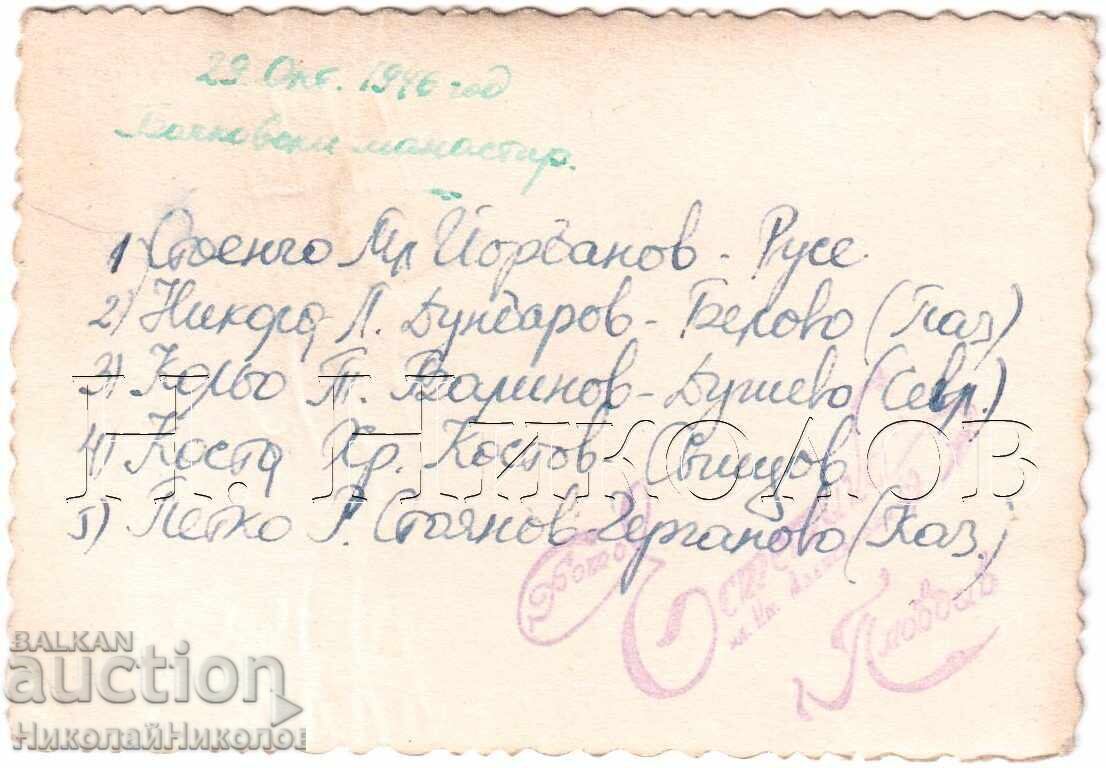 29 Окт. 1946 год
Бачковски манастир.
1) Стоенчо Мл Йорданов - Русе
2) Никола Л. Дундаров - Белово (Паз)
3) Кольо Т. Валинов - Душево (Севл.)
4) Коста Хр. Костов - Свищов
5) Петко Р. Стоянов - Черганово (Каз.)
Н. НИКОЛОВ
Фото
Пловдивъ
BALKAN
auction
НиколайНиколов